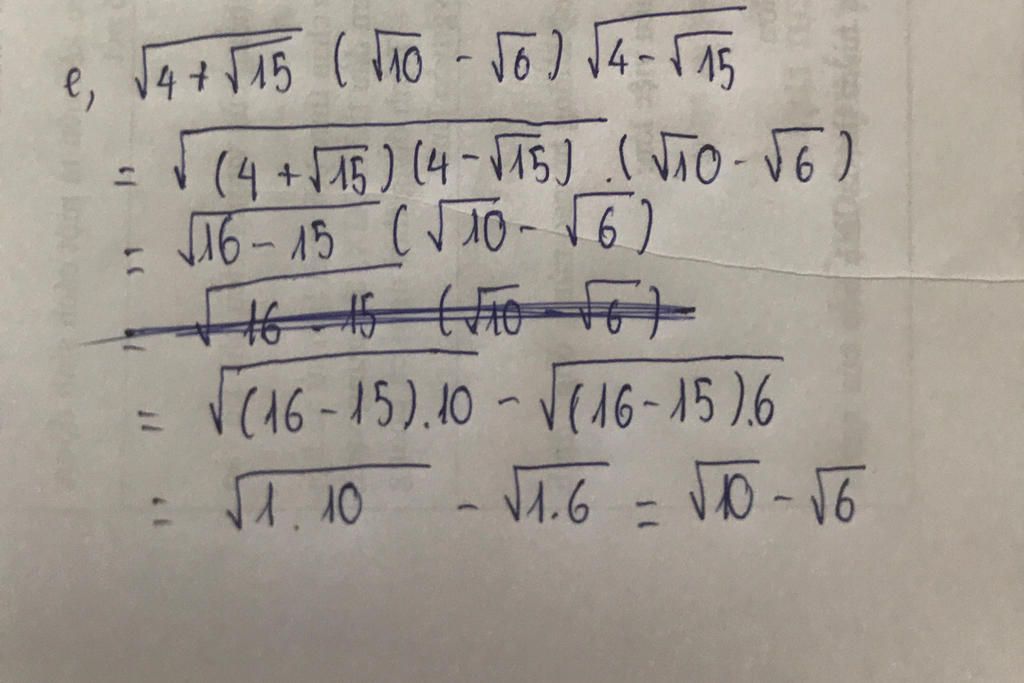 e, √(4+√15) (√10 - √6) √(4-√15)
= √((4+√15)(4-√15)) . (√10 - √6)
= √(16-15) (√10 - √6)
= √(16-15) (√10 - √6)
= √((16-15).10) - √((16-15).6)
= √(1.10) - √(1.6) = √10 - √6